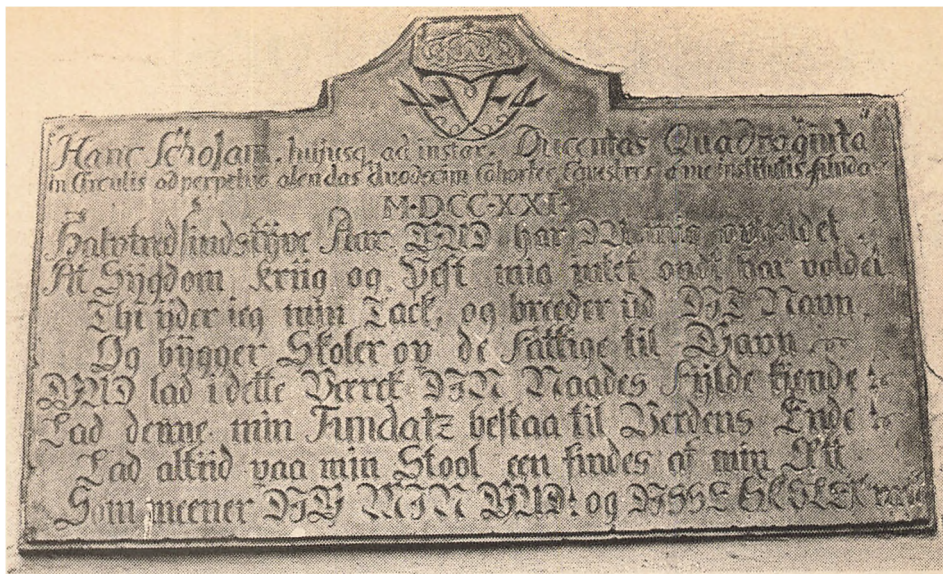 Hanc Scholam, hujusq. ad instar. Ducentas Quadraginta
in Circulis ad perpetuo alendas duodecim Cohortes Equestres a me institutis funda
M·DCC·XXI·
Halvtredsindstÿve Aar, GUD har DU mig opholdet
At Sÿgdom Kriig og Pest mig intet ondt har voldet
Thi ÿder ieg min Tack, og breeder ud DIT Navn,
Og bÿgger Skoler op de Fattige til Gavn
GUD lad i dette Verck DIN Naades Fÿlde kiende
Lad denne min Fundatz bestaa til Verdens Ende
Lad altiid paa min Stool een findes af min Ætt
Som meener DIG MIN GUD og DISSE SKOLER